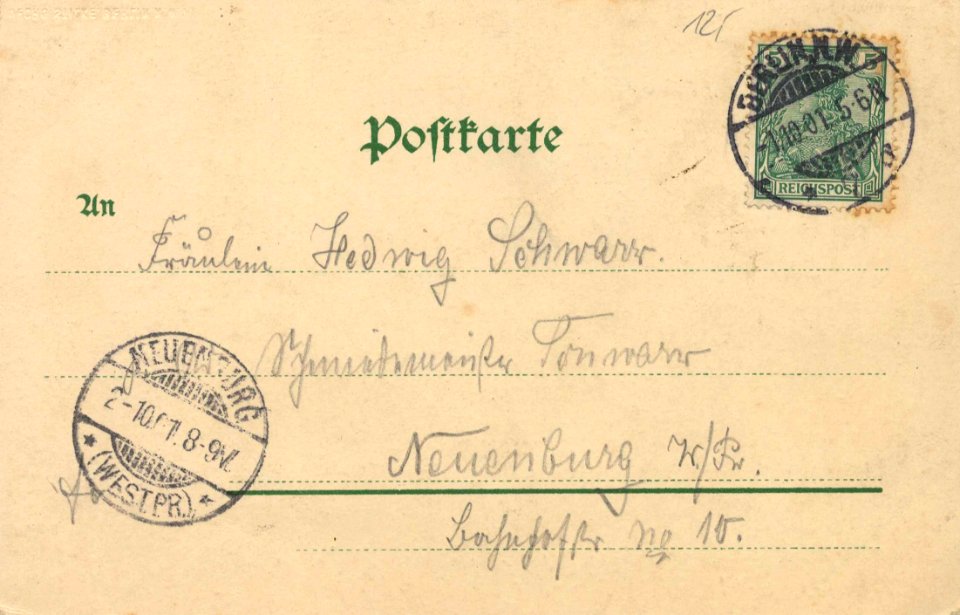 125
BERLIN N.W.
-1.10.01. 5-6N
REICHSPOST
Postkarte
An
Fräulein Hedwig Schwarz.
Schmiedemeister
Neuenburg W/Pr.
Bahnhofstr No 10.
NEUENBURG
2-10.01. 8-9V.
* (WESTPR.) *